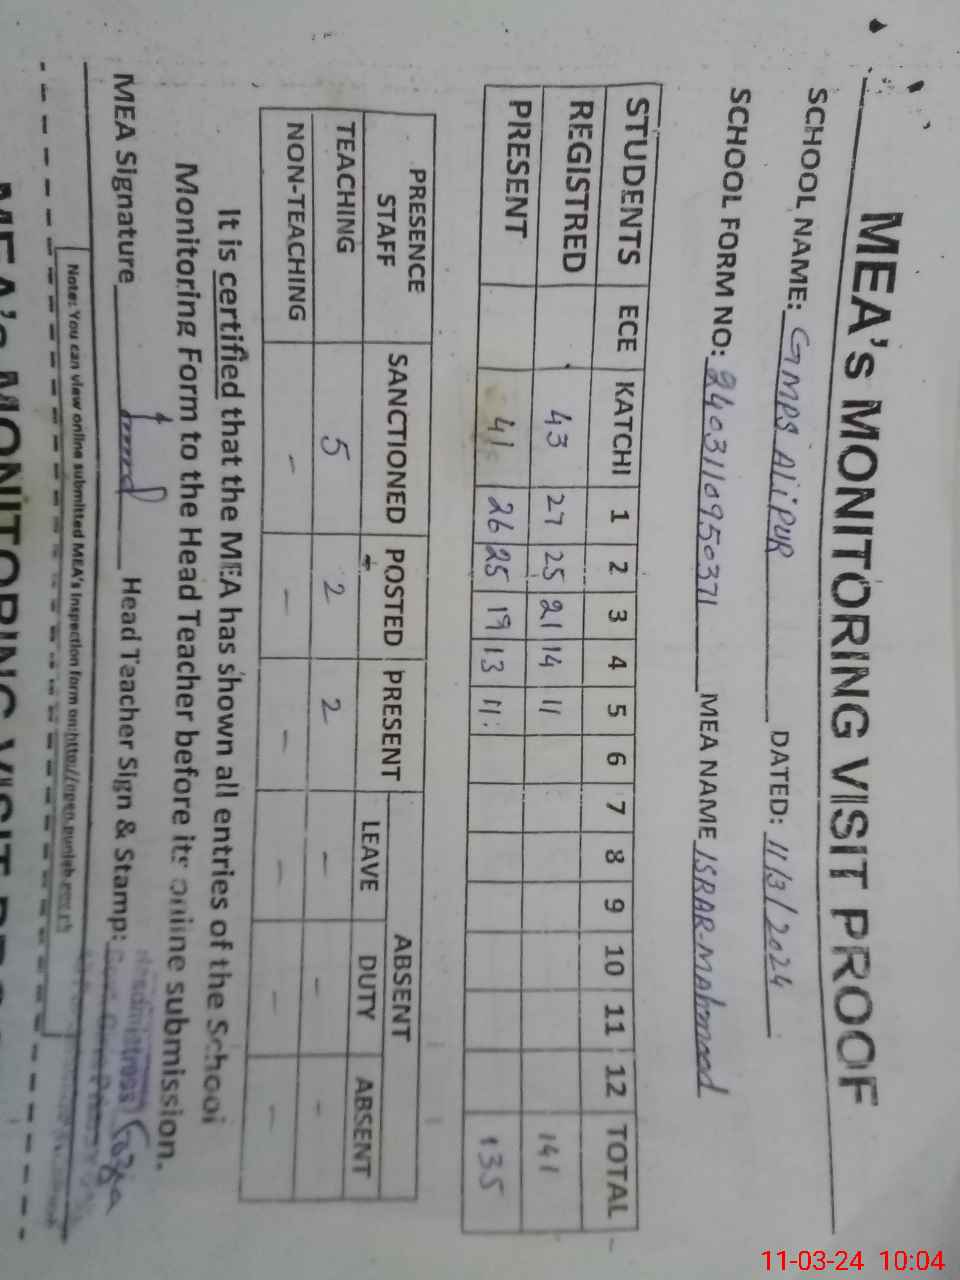 MEA's MONITORING VISIT PROOF
SCHOOL NAME: GMPS ALiPUR DATED: 11/3/2024
SCHOOL FORM NO: 2403110950371 MEA NAME ISRAR-Mahmood
STUDENTS ECE KATCHI 1 2 3 4 5 6 7 8 9 10 11 12 TOTAL
REGISTRED 43 27 25 21 14 11 141
PRESENT 41 26 25 19 13 11 135
PRESENCE STAFF SANCTIONED POSTED PRESENT ABSENT
LEAVE DUTY ABSENT
TEACHING 5 2 2 - - -
NON-TEACHING - - - - - -
It is certified that the MEA has shown all entries of the School
Monitoring Form to the Head Teacher before its online submission.
MEA Signature Head Teacher Sign & Stamp:
Headmistress
Note: You can view online submitted MEA's Inspection form on:http://open.punjab.gov.pk
MEA's MONITORING VISIT
11-03-24 10:04